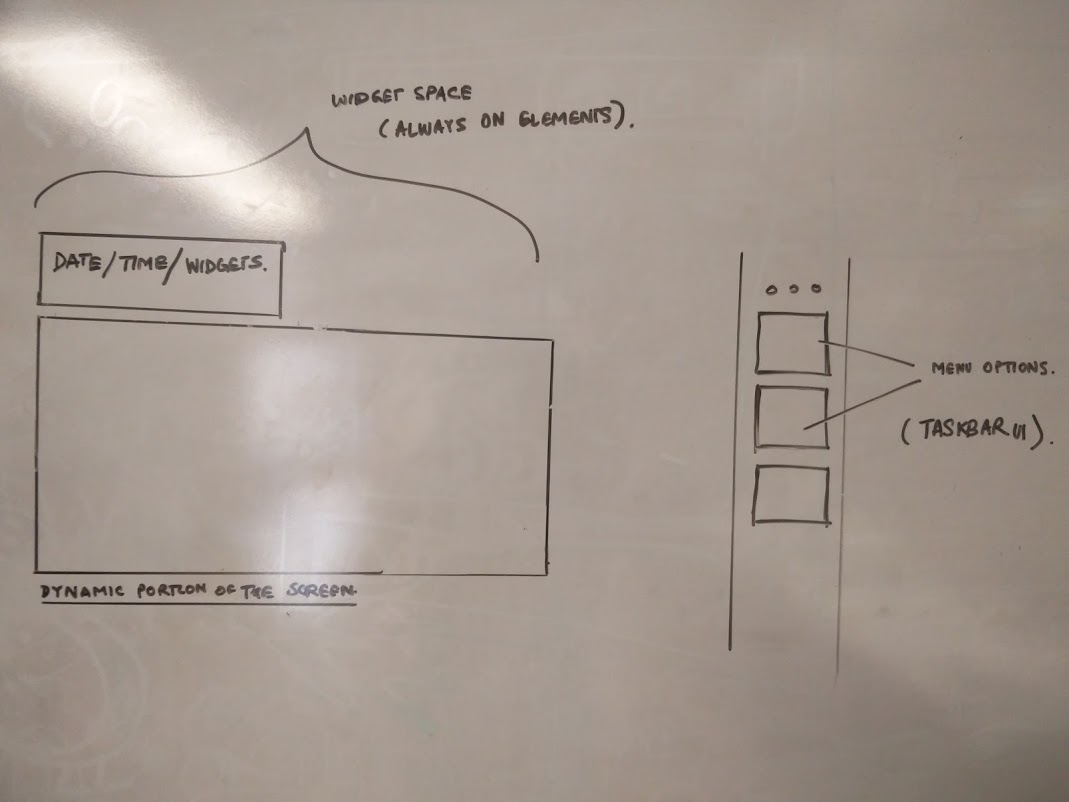 WIDGET SPACE
(ALWAYS ON ELEMENTS).
DATE/TIME/WIDGETS.
DYNAMIC PORTION OF THE SCREEN.
MENU OPTIONS.
(TASKBAR UI).